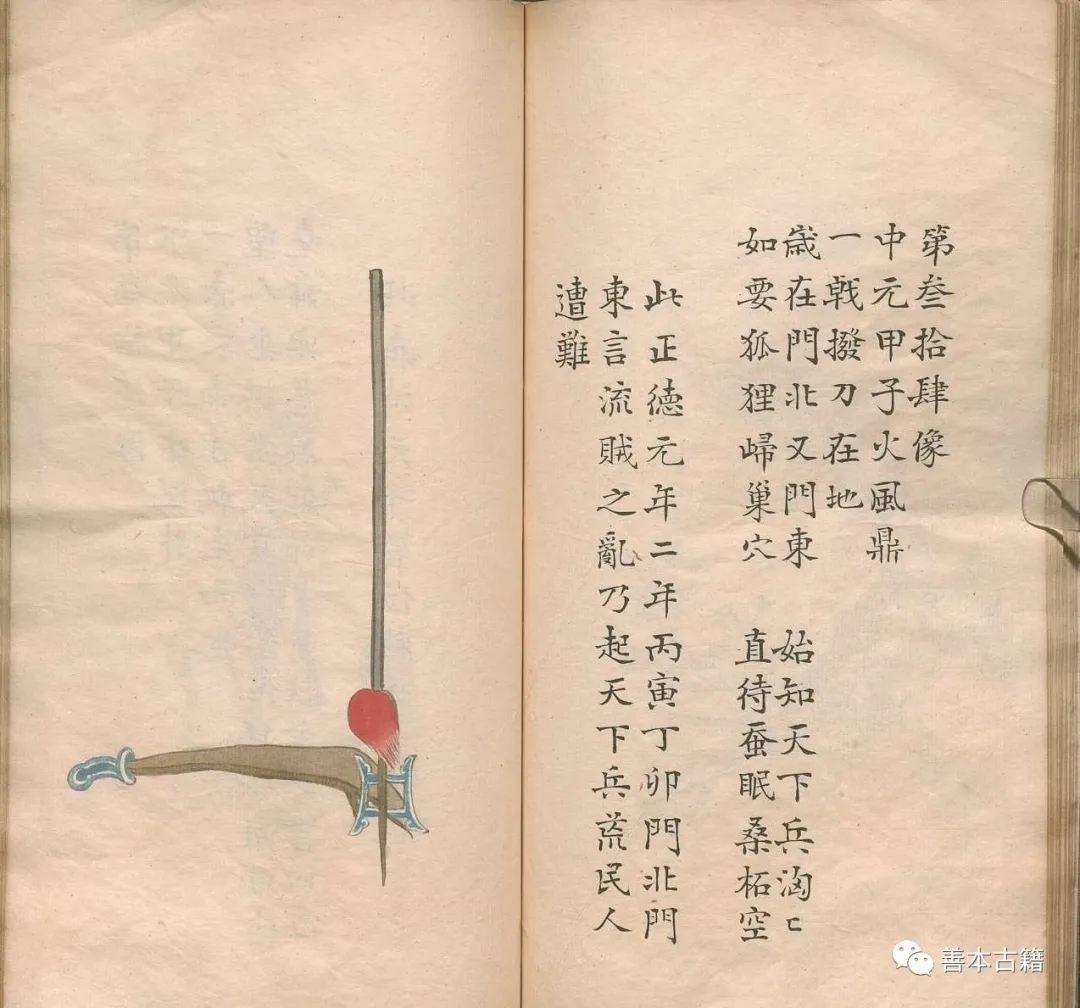 第叁拾肆像
中元甲子火風鼎
一戟撥刀在地
歲在門北又門東　始知天下兵洶〻
如要狐狸歸巢穴　直待蚕眠桑柘空
此正德元年二年丙寅丁卯門北門
東言流賊之亂乃起天下兵荒民人
遭難
善本古籍